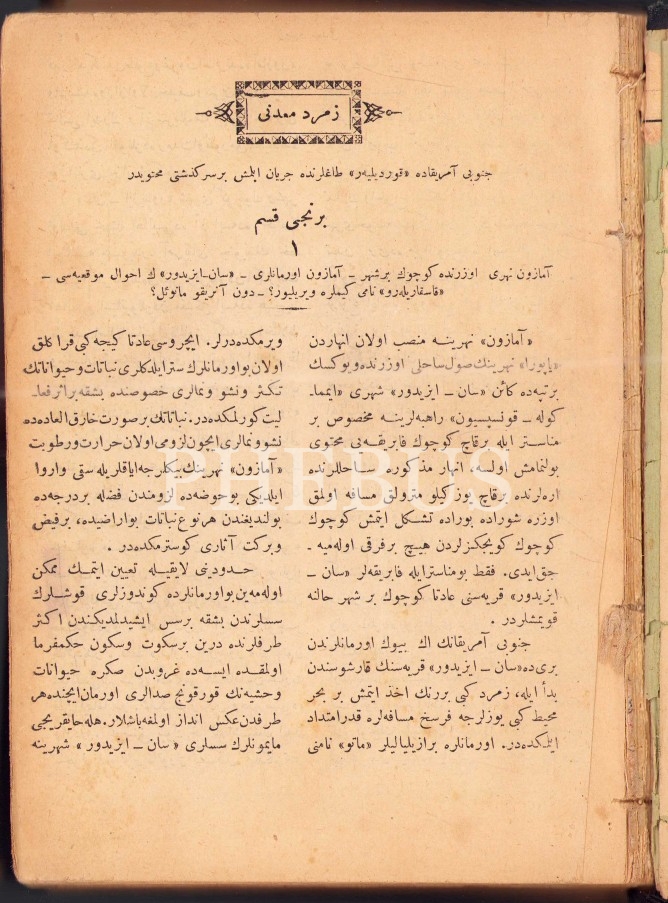 زمرد معدنی
جنوبی آمریقاده «قوردیلیه‌ر» طاغلرنده جریان ایلمش بر سرکذشتی محتویدر
برنجی قسم
١
آمازون نهری اوزرنده کوچوك بر شهر ـ آمازون اورمانلری ـ «سان-ایزیدور» ك احوال موقعیه‌سی ـ
«قاسقاریله‌رو» نامی کیملره ویریلیور؟ ـ دون آنریقو مانوئل؟
«آمازون» نهرینه منصب اولان انهاردن
«یاپورا» نهرینك صول ساحلی اوزرنده ویوکسك
برتپه‌ده کائن «سان ـ ایزیدور» شهری «ایمما.
کوله ـ قونسپسیون» راهبه‌لرینه مخصوص بر
مناستر ایله برقاچ کوچوك فابریقه‌یی محتوی
بولنمامش اولسه، انهار مذکوره ساحللرنده
اره‌لرنده برقاچ یوز کیلو مترولق مسافه اولمق
اوزره شوراده بوراده تشکل ایتمش کوچوك
کوچوك کویجکزلردن هیچ برفرقی اوله‌میه ـ
جق‌ایدی. فقط بومناسترایله فابریقه‌لر «سان ـ
ایزیدور» قریه‌سنی عادتا کوچوك بر شهر حالنه
قویمشلردر.
جنوبی آمریقانك اك بیوك اورمانلرندن
بری‌ده «سان ـ ایزیدور» قریه‌سنك قارشوسندن
بدأ ایله، زمرد کبی بررنك اخذ ایتمش بر بحر
محیط کبی یوزلرجه فرسخ مسافه‌لره قدرامتداد
ایلمکده‌در. اورمانلره برازیلیالیلر «ماتو» نامنی
ویرمکده‌درلر. ایچروسی عادتا کیجه‌کبی قراکلق
اولان بواورمانلرك سترایلدکلری نباتات وحیواناتك
تکثر ونشو ونمالری خصوصنده بشقه برأثرفعا.
لیت کورلمکده‌در. نباتاتك برصورت خارق العاده‌ده
نشوونمالری ایچون لزومی اولان حرارت ورطوبت
«آمازون» نهرینك بیکلرجه‌ایاقلریله سقی واروا
ایلدیکی بوحوضه‌ده لزومندن فضله بردرجه‌ده
بولندیغندن هرنوع نباتات بواراضیده، برفیض
وبرکت آثاری کوسترمکده‌در.
حدودینی لایقیله تعیین ایتمك ممکن
اوله‌مه‌ین بواورمانلرده کوندوزلری قوشلرك
سسلرندن بشقه برسس ایشیدلمدیکندن اکثر
طرفلرنده درین برسکوت وسکون حکمفرما
اولمقده ایسه‌ده غروبدن صکره حیوانات
وحشیه‌نك قورقونج صدالری اورمان‌ایچنده‌هر
طرفدن عکس انداز اولمغه‌باشلار. هله‌حایقریجی
مایمونلرك سسلری «سان ـ ایزیدور» شهرینه
PHEBUS